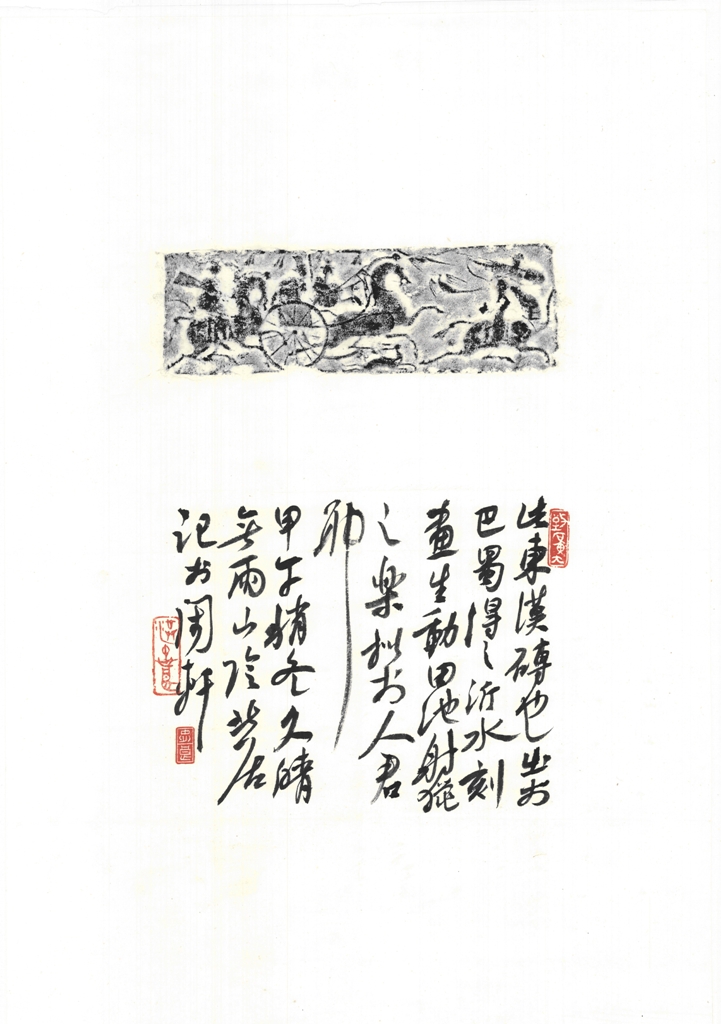 此東漢磚也出於
巴蜀得之沂水刻
畫生動田池射獵
之樂擬於人君
耶
甲午稍冬久晴
無雨山陰芸居
記於閒軒